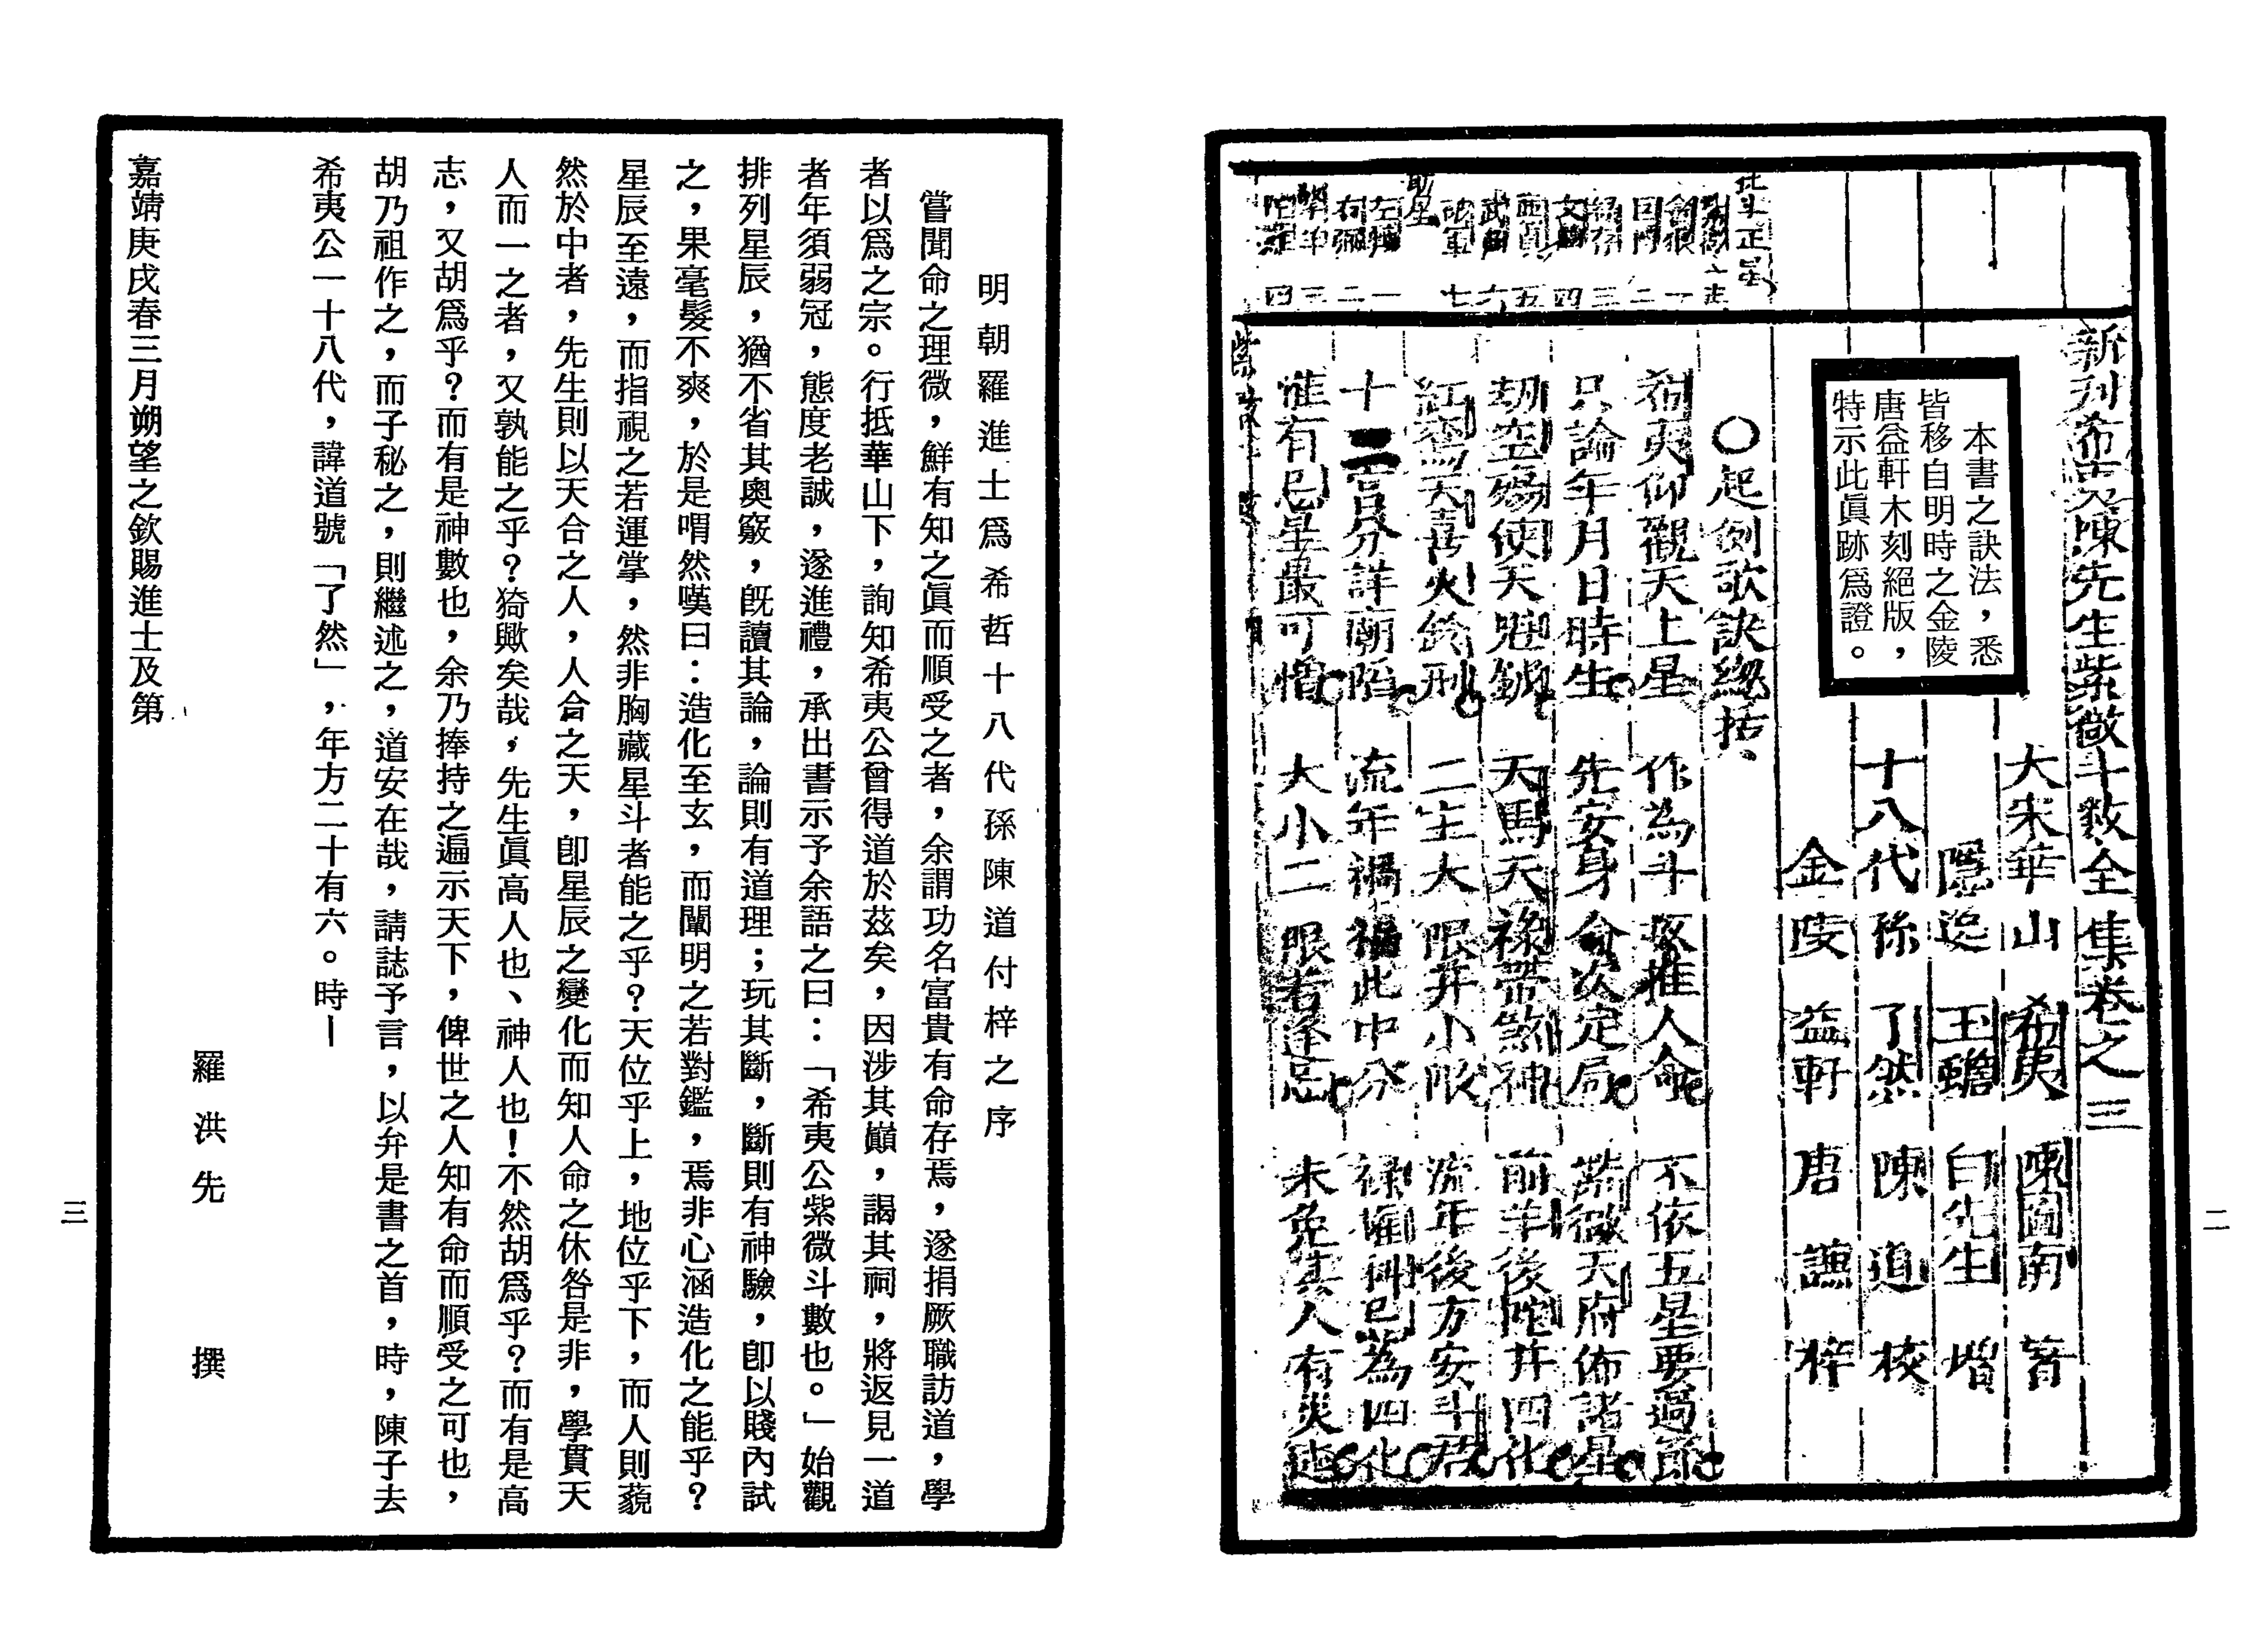 新刋希夷陳先生紫微斗数全集卷之三
大宋華山 希夷 陳圖南 著
隱逸 玉蟾 白先生 增
十八代孫 了然 陳道 校
金陵 益軒 唐謙 梓
本書之訣法，悉
皆移自明時之金陵
唐益軒木刻絕版，
特示此眞跡爲證。
北斗正星
助星
○起例歌訣總括
希夷仰觀天上星 作為斗数推人命 不依五星要過節
只論年月日時生 先安身命次定局 紫微天府佈諸星
劫空殤使天魁鉞 天馬天祿帶煞神 前羊後陀并四化
紅鸞天喜火鈴刑 二主大限并小限 流年後方安斗君
十二宮分詳廟陷 流年禍福此中分 祿權科忌為四化
惟有忌星最可憎 大小二限若逢忌 未免其人有災迍
二
明朝羅進士爲希哲十八代孫陳道付梓之序
嘗聞命之理微，鮮有知之眞而順受之者，余謂功名富貴有命存焉，遂捐厥職訪道，學
者以爲之宗。行抵華山下，詢知希夷公曾得道於茲矣，因涉其巔，謁其祠，將返見一道
者年須弱冠，態度老誠，遂進禮，承出書示予余語之曰：「希夷公紫微斗數也。」始觀
排列星辰，猶不省其奧竅，旣讀其論，論則有道理；玩其斷，斷則有神驗，卽以賤內試
之，果毫髮不爽，於是喟然嘆曰：造化至玄，而闡明之若對鑑，焉非心涵造化之能乎？
星辰至遠，而指視之若運掌，然非胸藏星斗者能之乎？天位乎上，地位乎下，而人則藐
然於中者，先生則以天合之人，人合之天，卽星辰之變化而知人命之休咎是非，學貫天
人而一之者，又孰能之乎？猗歟矣哉，先生眞高人也、神人也！不然胡爲乎？而有是高
志，又胡爲乎？而有是神數也，余乃捧持之遍示天下，俾世之人知有命而順受之可也，
胡乃祖作之，而子秘之，則繼述之，道安在哉，請誌予言，以弁是書之首，時，陳子去
希夷公一十八代，諱道號「了然」，年方二十有六。時—
嘉靖庚戌春三月朔望之欽賜進士及第
羅洪先 撰
三